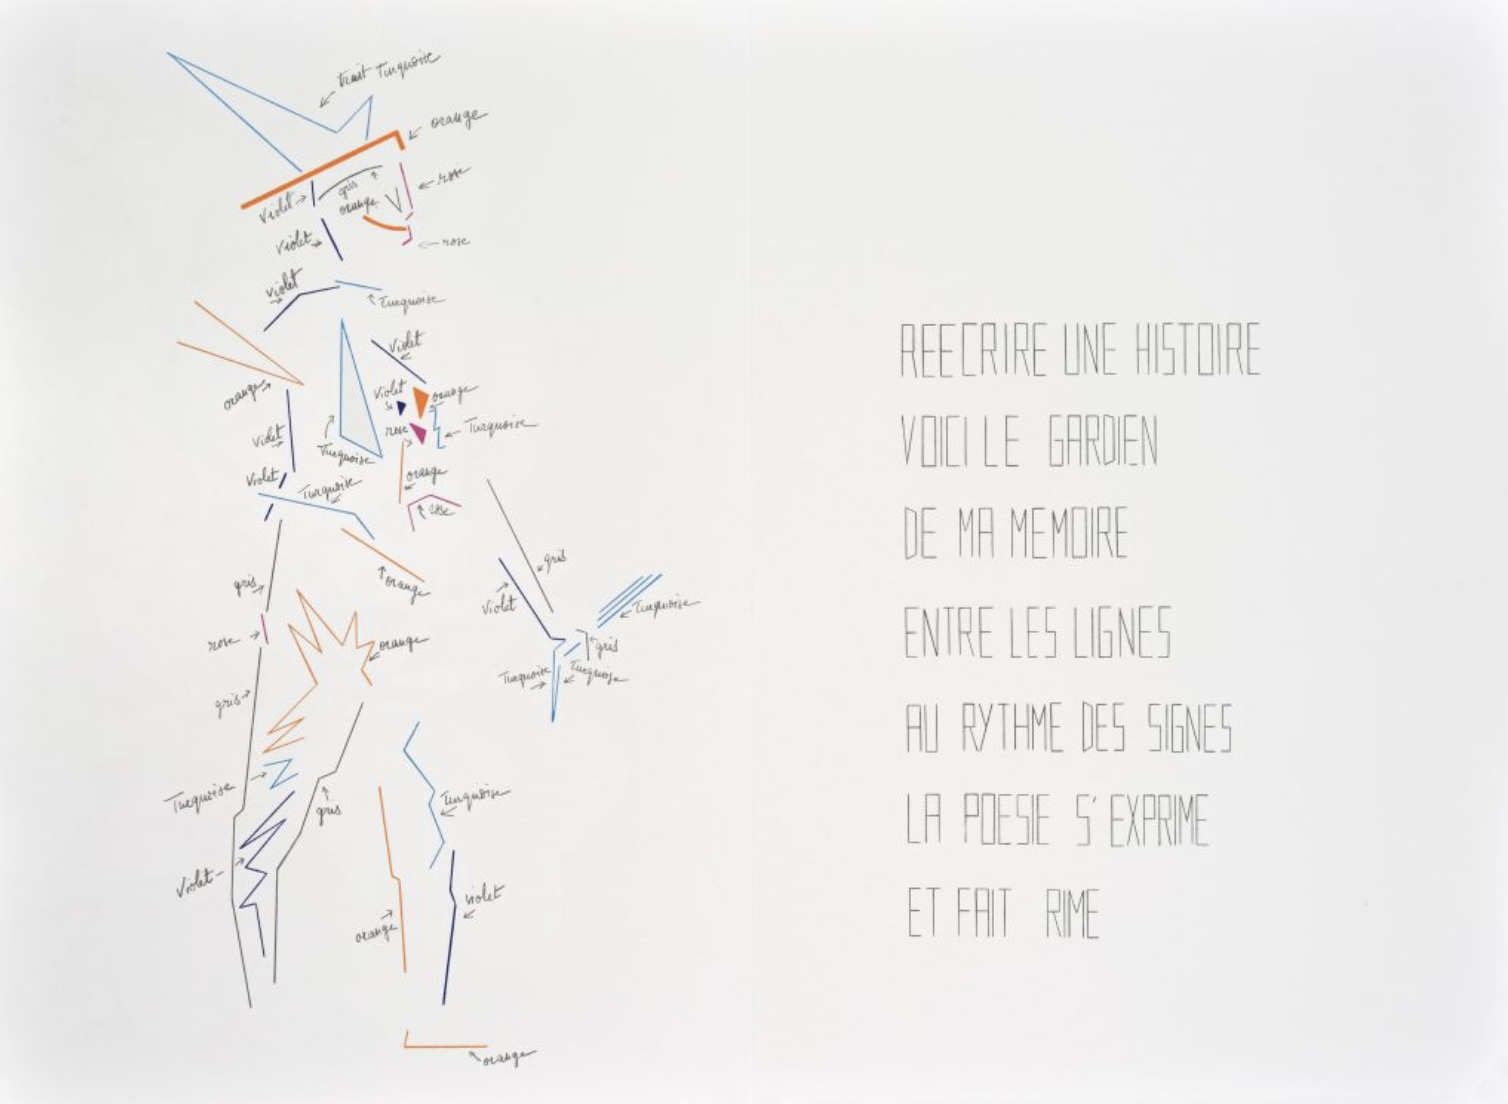 trait Turquoise
orange
rose
gris
violet
orange
violet
rose
violet
Turquoise
violet
orange
violet
orange
violet
rose
Turquoise
Turquoise
orange
violet
Turquoise
rose
gris
violet
orange
gris
Turquoise
rose
orange
gris
Turquoise
Turquoise
gris
Turquoise
gris
Turquoise
violet
violet
orange
orange
REECRIRE UNE HISTOIRE
VOICI LE GARDIEN
DE MA MEMOIRE
ENTRE LES LIGNES
AU RYTHME DES SIGNES
LA POESIE S'EXPRIME
ET FAIT RIME